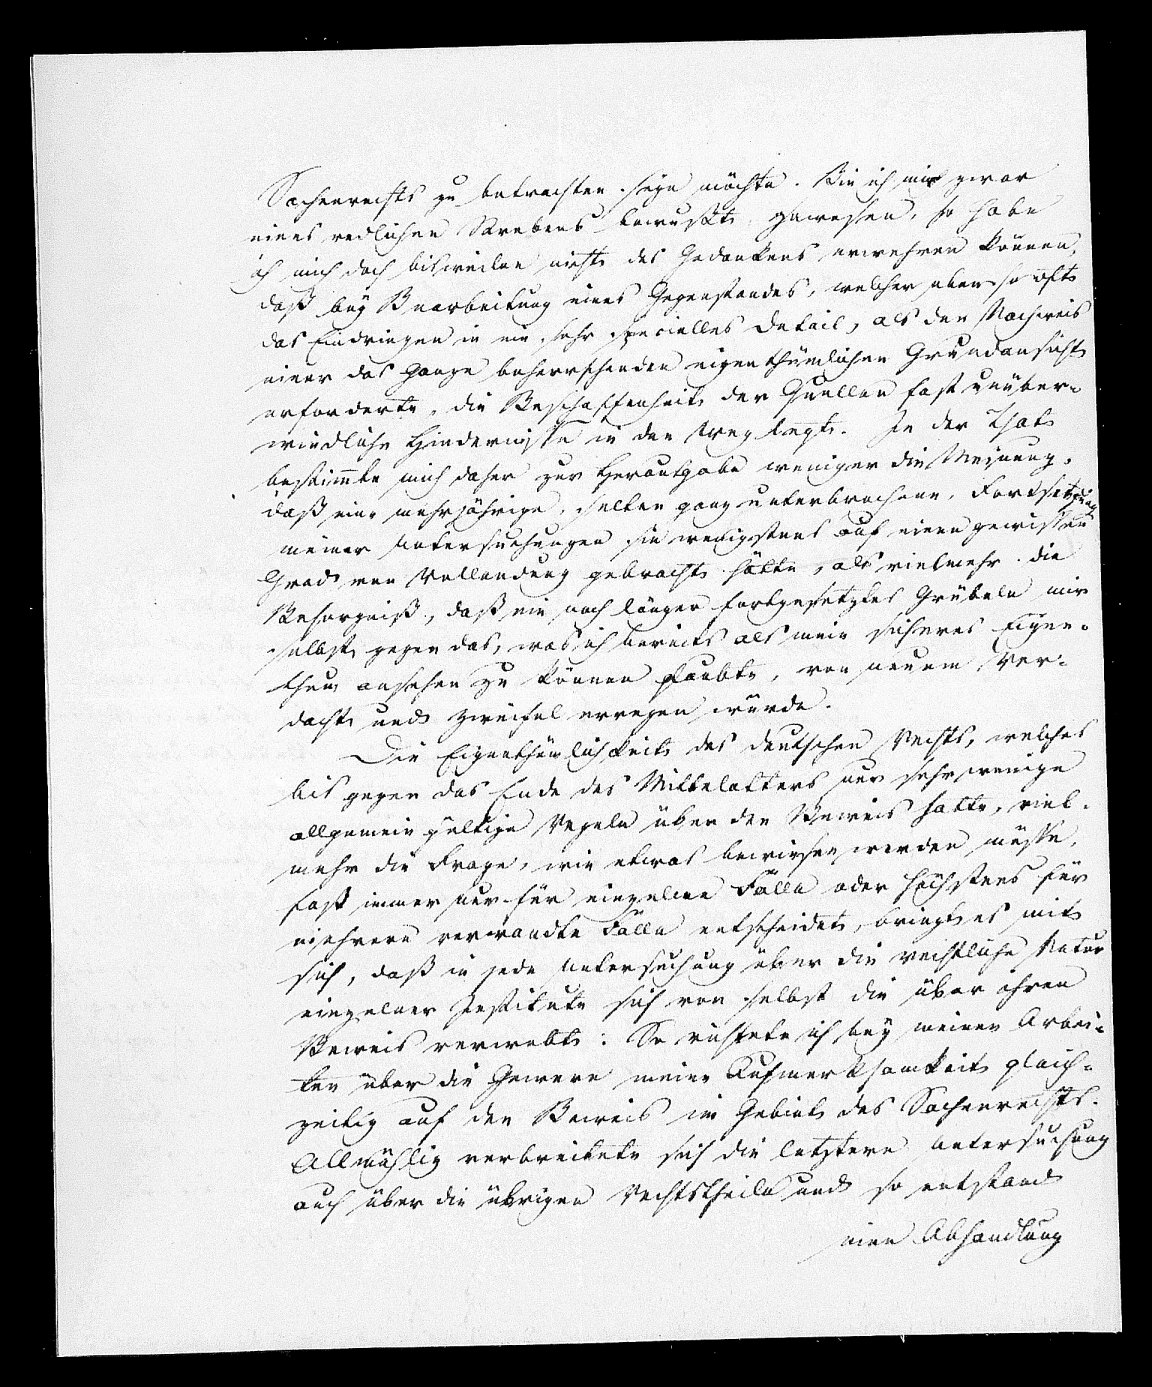 Sachenrechts zu betrachten seyn möchte. Bin ich mir zwar
eines redlichen Strebens bewußt gewesen, so habe
ich mich doch bisweilen nicht des Gedankens erwehren können,
daß bey Bearbeitung eines Gegenstandes, welcher eben so oft
das Eindringen in ein sehr specielles Detail, als den Nachweis
einer das Ganze beherrschenden eigenthümlichen Grundansicht
erforderte, die Beschaffenheit der Quellen fast unüber-
windliche Hindernisse in den Weg legt. In der That
bestimmte mich daher zur Herausgabe weniger die Meynung,
daß eine mehrjährige, selten ganz unterbrochene, Fortsetzung
meiner Untersuchungen sie wenigstens auf einen gewissen
Grad von Vollendung gebracht hätte, als vielmehr die
Besorgniß, daß ein noch länger fortgesetztes Grübeln mir
selbst gegen das, was ich bereits als mein sicheres Eigen-
thum ansehen zu können glaubte, von neuem Ver-
dacht und Zweifel erregen würde.
Die Eigenthümlichkeit des deutschen Rechts, welches
bis gegen das Ende des Mittelalters nur sehr wenige
allgemein gültige Regeln über den Beweis hatte, viel-
mehr die Frage, wie etwas bewiesen werden müsse,
fast immer nur für einzelne Fälle oder höchstens für
mehrere verwandte Fälle entscheidet, bringt es mit
sich, daß in jede Untersuchung über die rechtliche Natur
einzelner Institute sich von selbst die über ihren
Beweis verwebt. So richtete ich bey meinen Arbei-
ten über die Gewere meine Aufmerksamkeit gleich-
zeitig auf den Beweis im Gebiet des Sachenrechts.
Allmählig verbreitete sich die letztere Untersuchung
auch über die übrigen Rechtstheile und so entstand
eine Abhandlung